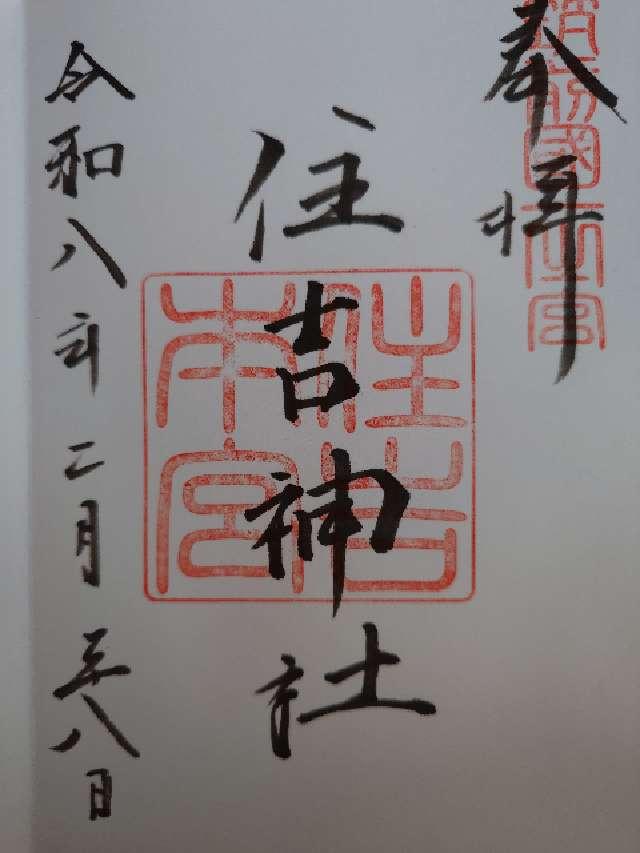 奉拝
筑前國一之宮
住吉神社
住吉本宮
令和八年二月廿八日